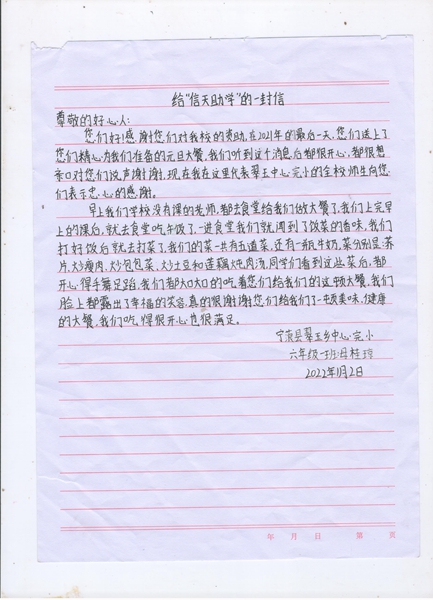 给“信天助学”的一封信
尊敬的好心人:
您们好!感谢您们对我校的资助,在2021年的最后一天,您们送上了
您们精心为我们准备的元旦大餐,我们听到这个消息后都很开心,都很想
亲口对您们说声谢谢,现在我在这里代表翠玉中心完小的全校师生向您
们表示忠心的感谢。
早上我们学校没有课的老师,都去食堂给我们做大餐了,我们上完早
上的课后,就去食堂吃午饭了,一进食堂我们就闻到了饭菜的香味,我们
打好饭后就去打菜了,我们的菜一共有五道菜,还有一瓶牛奶,菜分别是:苏
片,炒瘦肉,炒包包菜,炒土豆和莲藕炖肉汤,同学们看到这些菜后,都
开心得手舞足蹈,我们都大口大口的吃着您们给我们的这顿大餐,我们
脸上都露出了幸福的笑容,真的很谢谢您们给我们了一顿美味,健康
的大餐,我们吃得很开心也很满足。
宁蒗县翠玉乡中心完小
六年级一班母桂
2022年1月2日
年 月 日 第 页